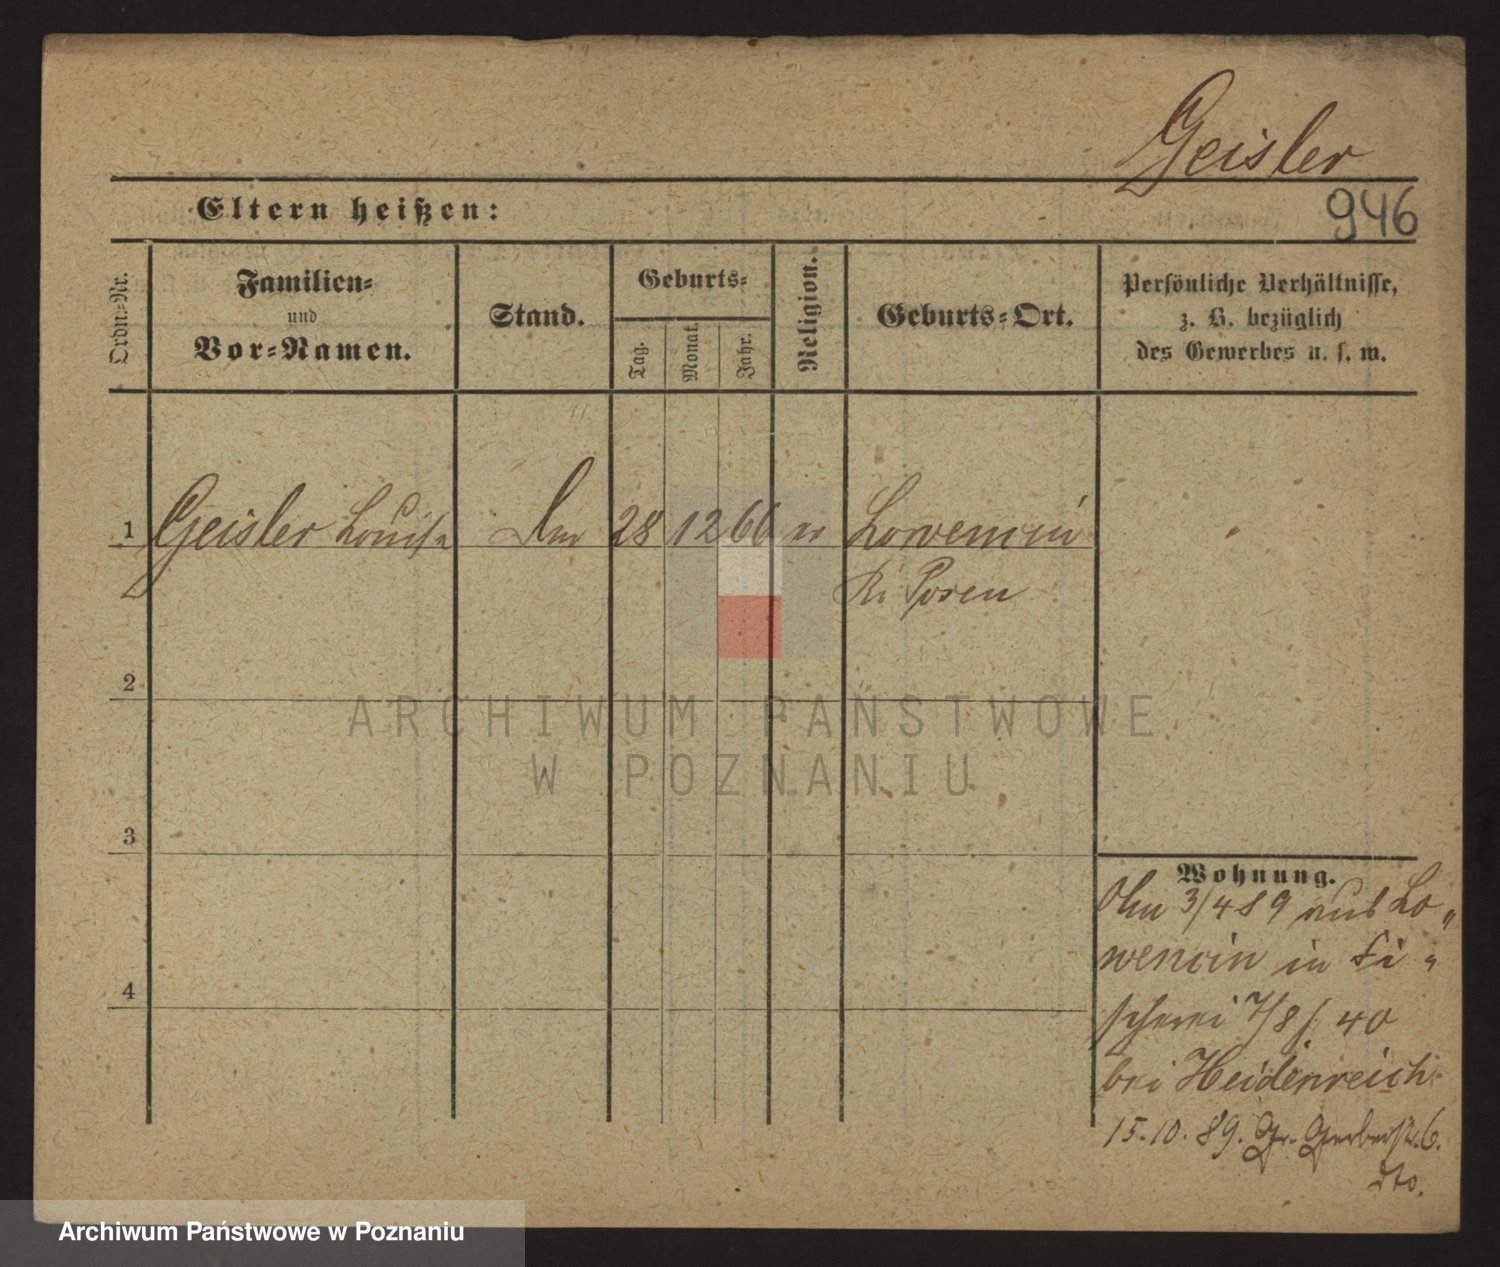 Geisler
946
Eltern heißen:
Ordn.-Nr.
Familien-
und
Vor-Namen.
Stand.
Geburts-
Tag.
Monat.
Jahr.
Religion.
Geburts-Ort.
Persönliche Verhältnisse,
z. B. bezüglich
des Gewerbes u. s. w.
1 Geisler Louise 28 12 66 Lowencin
Kr Posen
2
3
4
ARCHIWUM PAŃSTWOWE
W POZNANIU
Wohnung.
3/4 89 aus Lo„
wencin in Fi„
scherei 7/8/40
bei Heidenreich
15.10.89. Gr. Gerberstr. 6.
dto.
Archiwum Państwowe w Poznaniu